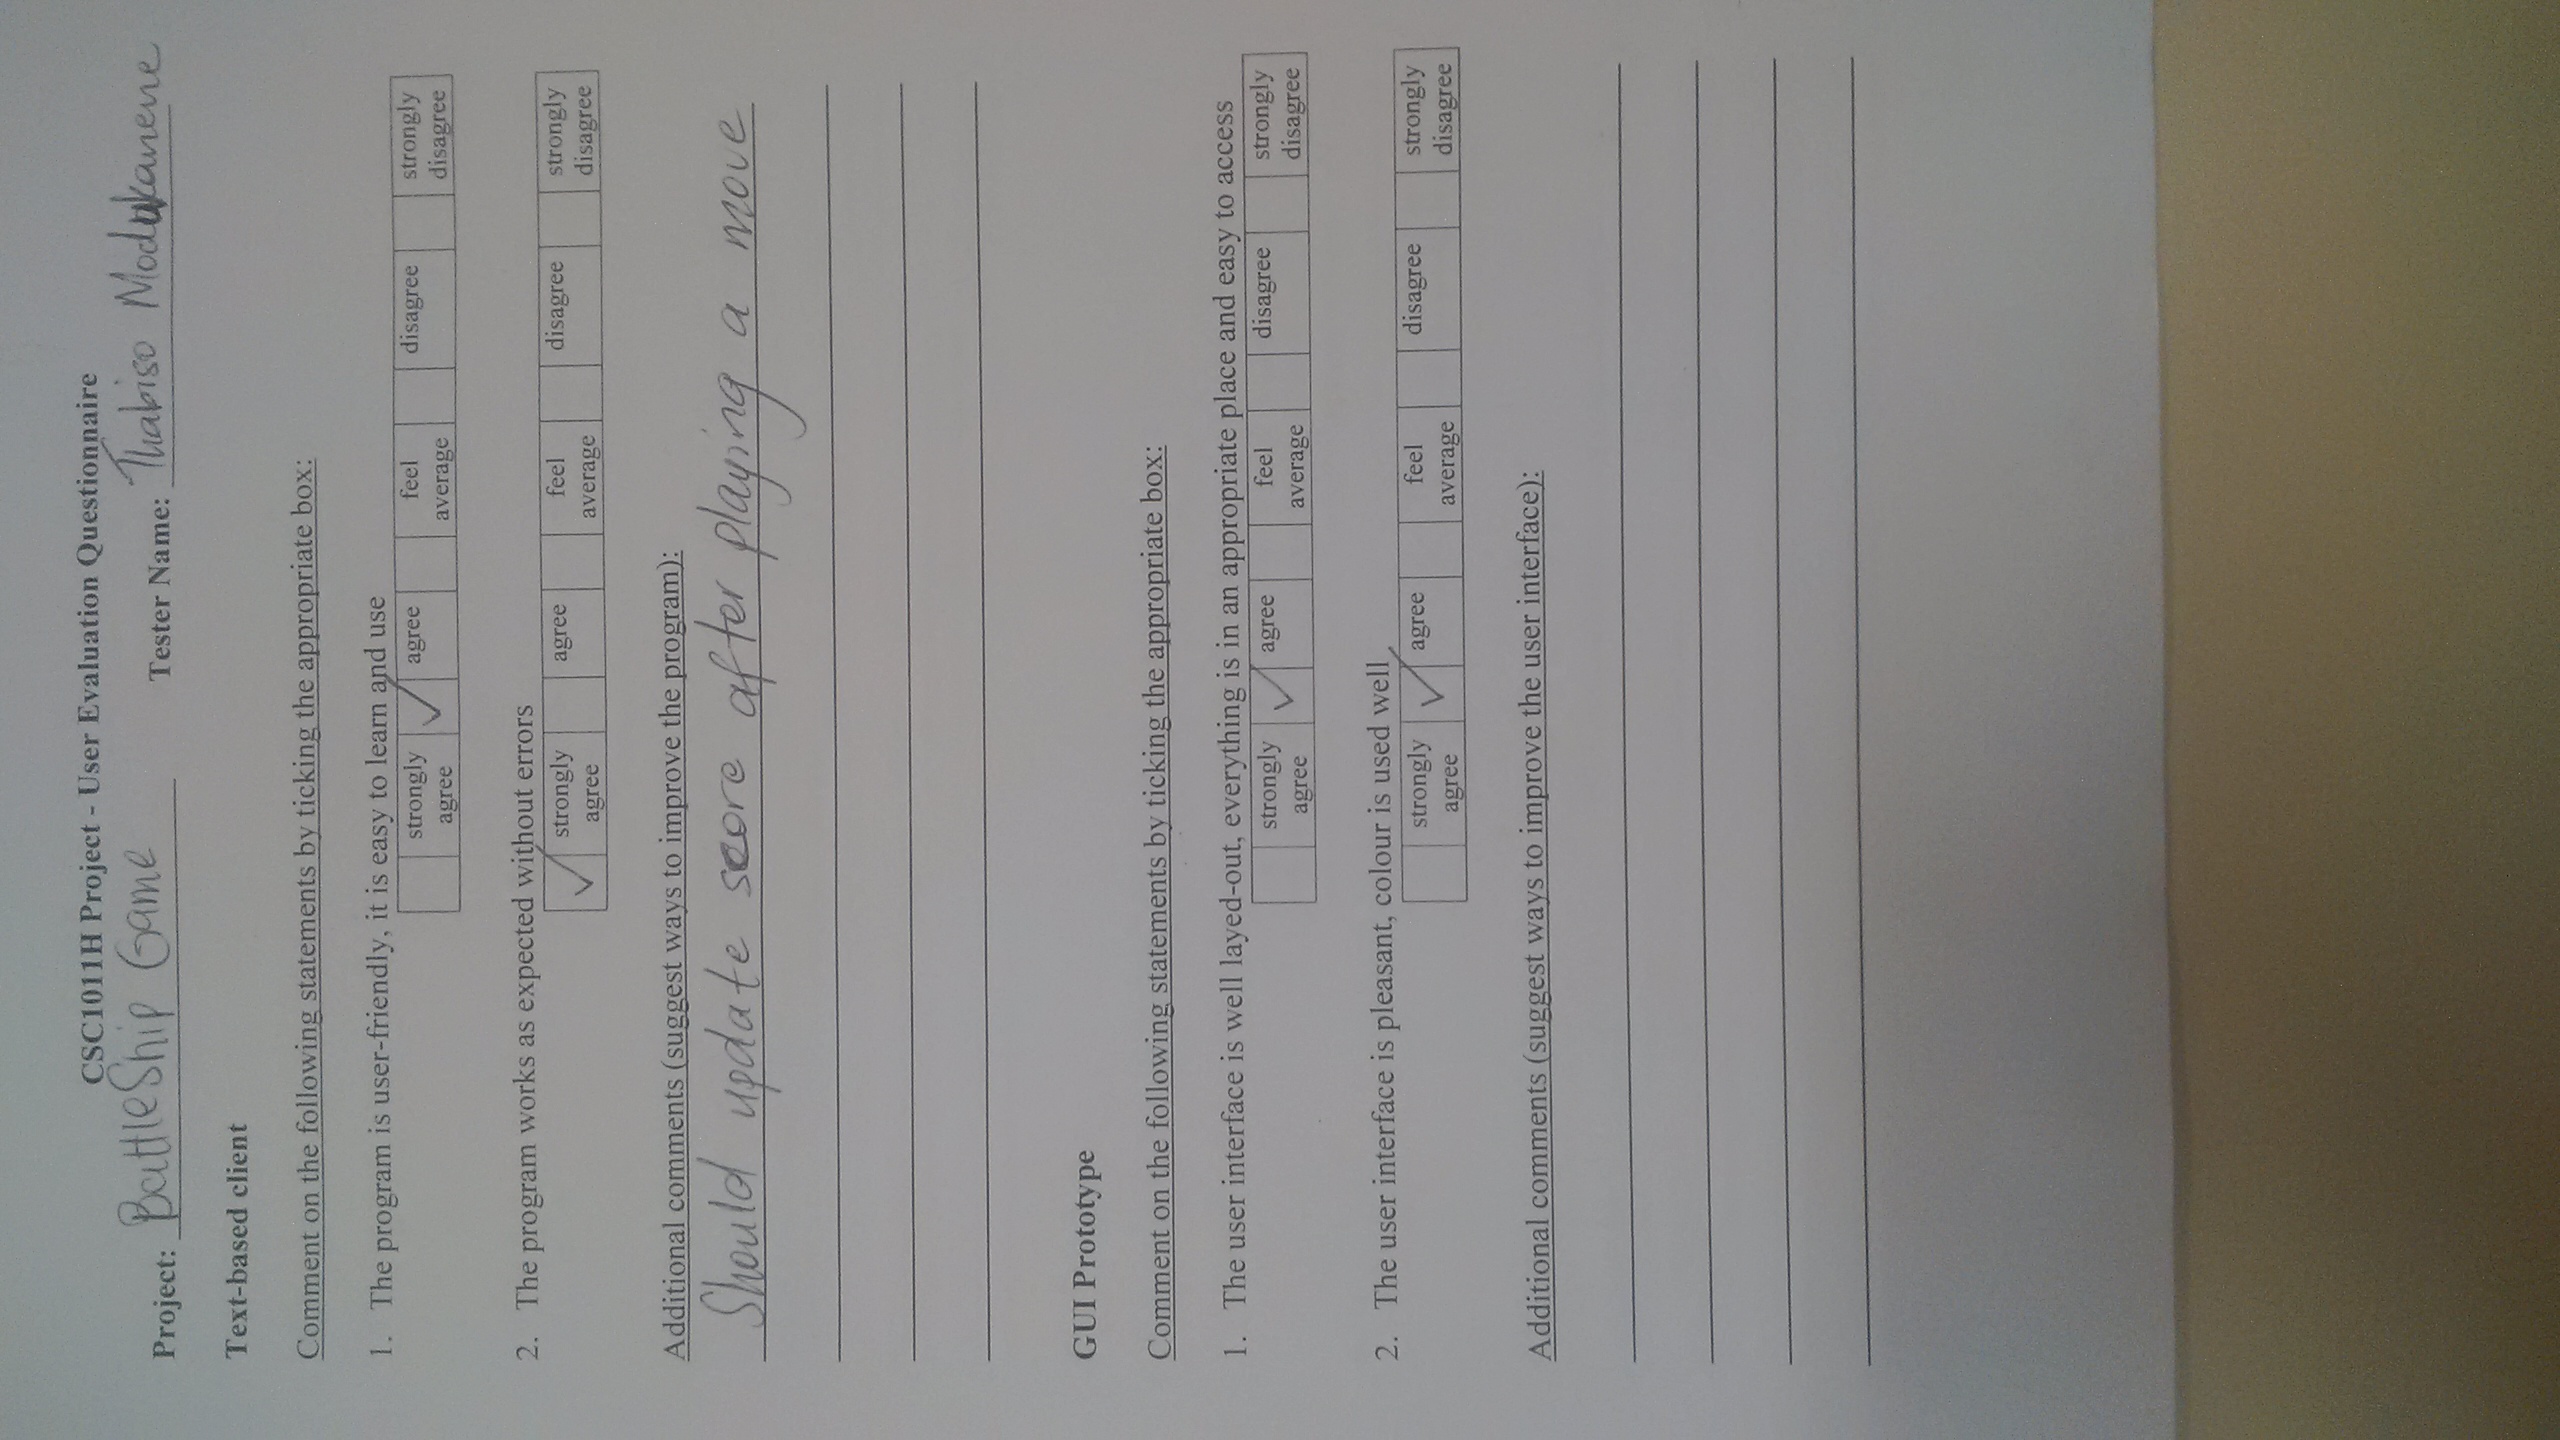 CSC1011H Project - User Evaluation Questionnaire
Project: BattleShip Game Tester Name: Thabiso Modukanene
Text-based client
Comment on the following statements by ticking the appropriate box:
1. The program is user-friendly, it is easy to learn and use
strongly agree ✓ agree feel average disagree strongly disagree
2. The program works as expected without errors
✓ strongly agree agree feel average disagree strongly disagree
Additional comments (suggest ways to improve the program):
Should update score after playing a move
GUI Prototype
Comment on the following statements by ticking the appropriate box:
1. The user interface is well layed-out, everything is in an appropriate place and easy to access
strongly agree ✓ agree feel average disagree strongly disagree
2. The user interface is pleasant, colour is used well
strongly agree ✓ agree feel average disagree strongly disagree
Additional comments (suggest ways to improve the user interface):